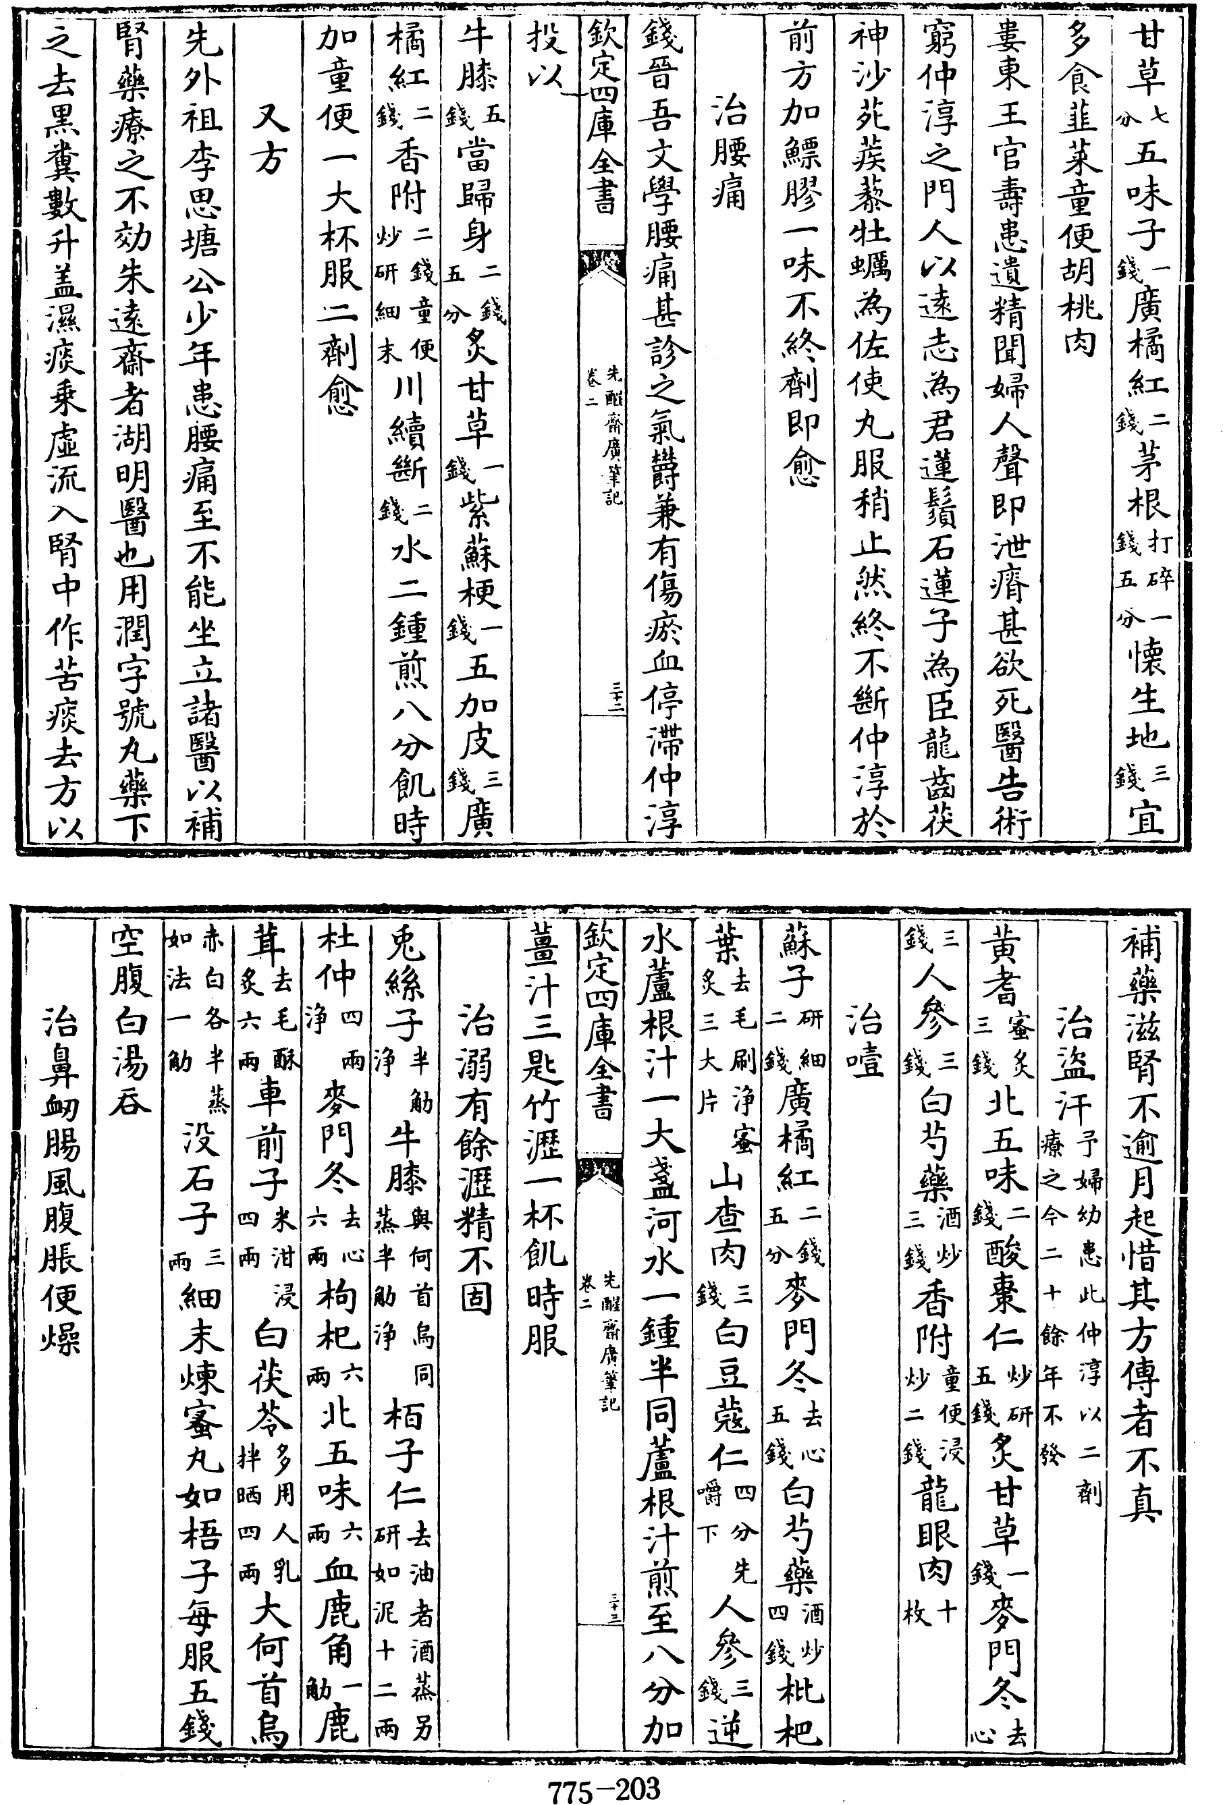 甘草七分五味子一錢廣橘紅二錢茅根打碎一錢五分懷生地三錢宜
多食韭菜童便胡桃肉
婁東王官壽患遺精聞婦人聲即泄瘠甚欲死醫告術
窮仲淳之門人以遠志為君蓮鬚石蓮子為臣龍齒茯
神沙苑蒺藜牡蠣為佐使丸服稍止然終不斷仲淳於
前方加鰾膠一味不終劑即愈
治腰痛
錢晉吾文學腰痛甚診之氣鬱兼有傷瘀血停滯仲淳
欽定四庫全書
先醒齋廣筆記
卷二
三十二
投以
牛膝五錢當歸身二錢五分炙甘草一錢紫蘇梗一錢五加皮三錢廣
橘紅二錢香附二錢童便炒研細末川續斷二錢水二鍾煎八分飢時
加童便一大杯服二劑愈
又方
先外祖李思塘公少年患腰痛至不能坐立諸醫以補
腎藥療之不効朱遠齋者湖明醫也用潤字號丸藥下
之去黑糞數升盖濕痰乗虛流入腎中作苦痰去方以
補藥滋腎不逾月起惜其方傳者不真
治盜汗予婦幼患此仲淳以二劑療之今二十餘年不發
黄耆蜜炙三錢北五味二錢酸棗仁炒研五錢炙甘草一錢麥門冬去心
三錢人參三錢白芍藥酒炒三錢香附童便浸炒二錢龍眼肉十枚
治噎
蘇子研細二錢廣橘紅二錢五分麥門冬去心五錢白芍藥酒炒四錢枇杷
葉去毛刷浄蜜炙三大片山查肉三錢白豆蔻仁四分先嚼下人參三錢逆
水蘆根汁一大盞河水一鍾半同蘆根汁煎至八分加
欽定四庫全書
先醒齋廣筆記
卷二
三十三
薑汁三匙竹瀝一杯飢時服
治溺有餘瀝精不固
兎絲子半觔浄牛膝與何首烏同蒸半觔浄栢子仁去油者酒蒸另研如泥十二兩
杜仲四兩浄麥門冬去心六兩枸杞六兩北五味六兩血鹿角一觔鹿
茸去毛酥炙六兩車前子米泔浸四兩白茯苓多用人乳拌晒四兩大何首烏
赤白各半蒸如法一觔没石子三兩細末煉蜜丸如梧子每服五錢
空腹白湯吞
治鼻衂腸風腹脹便燥
775-203